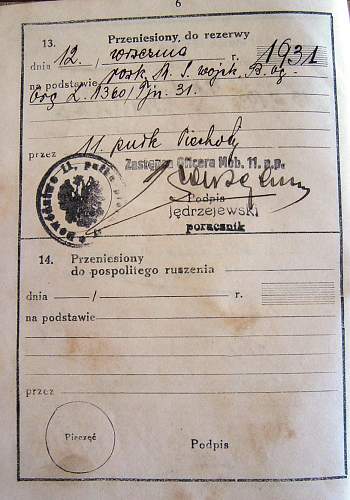 6
13. Przeniesiony, do rezerwy
dnia 12. / września r. 1931
na podstawie rozk. M. S. Wojsk. B. og.
org L. 1360/Tjn. 31.
przez 11. pułk Piechoty
Zastępca Oficera Mob. 11. p.p.
Dowództwo 11. pułku
Podpis
Jędrzejewski
porucznik
14. Przeniesiony
do pospolitego ruszenia
dnia / r.
na podstawie
przez
Pieczęć
Podpis